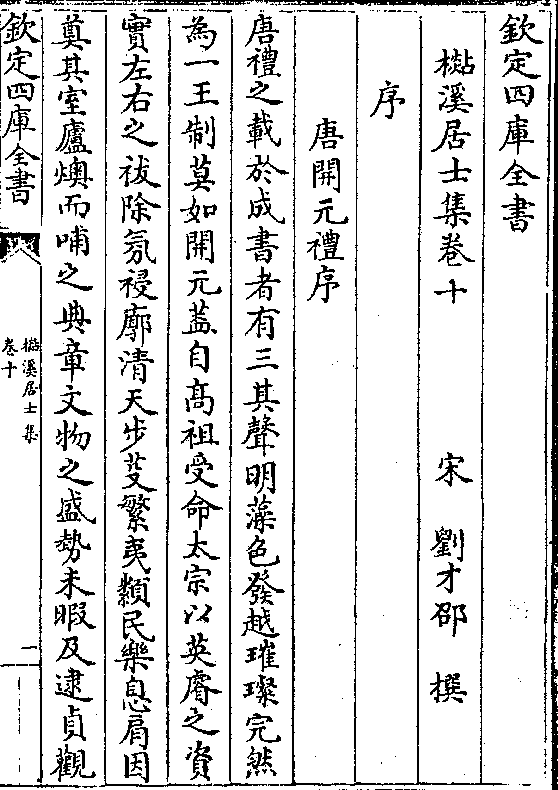 欽定四庫全書
檆溪居士集卷十　宋　劉才邵　撰
序
唐開元禮序
唐禮之載於成書者有三其聲明藻色發越璀璨完然
為一王制莫如開元葢自高祖受命太宗以英睿之資
實左右之祓除氛祲廓清天步芟繁夷纇民樂息肩因
奠其室廬燠而哺之典章文物之盛勢未暇及逮貞觀
欽定四庫全書
檆溪居士集
卷十
一